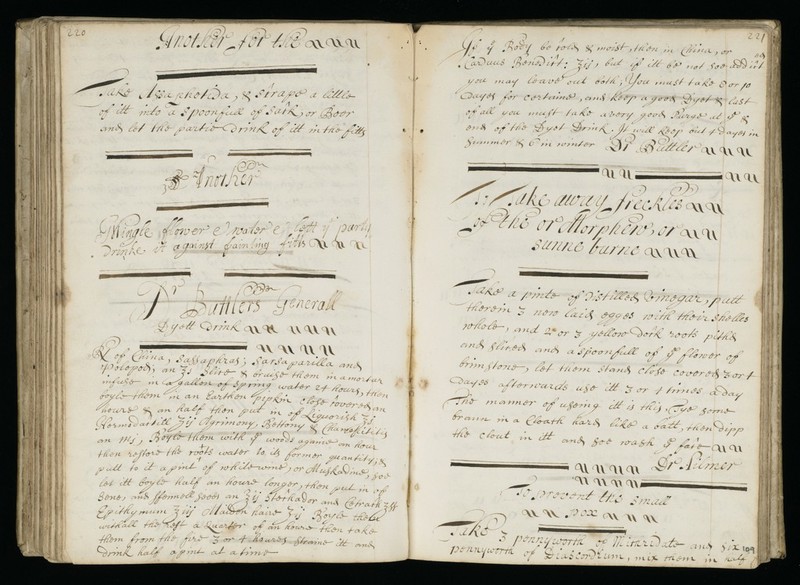 220
Another for the
Take Assaphetida, & scrape a little
of itt into a spoonfull of sack, or Beer
and let the partie Drink of itt in the fitts
Another
Mingle flower & water & lett ye party
Drinke it against fainting fitts
Dr Buttlers Generall
Dyett Drink
of China, Sassaphras, Sarsaparilla and
Polopod, an ℥j Slice & bruise them in a mortar
infuse in a gallon of spring water 24 houres, then
boyle them in an Earthen pipkin close covered an
houre & an half then put in of Liquorish ℥j
Hermodactill ℥ij Agrimony, Bettony &
an Mj, Boyle them with ye woods againe an hour
then restore the roots water to its former quantity, &
putt to it a pint of white wine, or Muskadine, soe
let itt boyle half an houre longer, then put in of
Sene, and ffennell seeds an ℥ij and Cetrach
Epithymum ℥iij Maiden haire ℥ij Boyle these
withall the rest a quarter of an houre then take
them from the fire 3 or 4 houres straine itt and
drink half a pint at a time
221
If ye Body be cold & moist, then in China, or
Carduus Benedict: ℥ij, but if itt be not soe
you may leave out both, You must take 8 or 10
Dayes for certaine, and keep a good Dyet & last
of all you must take a very good Purge at ye
end of the Dyet Drink. It will keep but 4 dayes in
Summer & 6 in winter Dr Buttler
To Take away freckles
or Morphew, or
sunne burne
Take a pinte of Distilled vinegar, putt
therein 3 new laid egges with their shelles
whole, and 2 or 3 yellow dock roots pickd
and sliced and a spoonfull of ye flower of
brimstone, let them stand close covered 3 or 4
Dayes afterwards use itt 3 or 4 times a day
The manner of useing itt is this, Tye some
brann in a Cloath hard like a ball, then dipp
the clout in itt and soe wash ye face
Dr
To prevent the small
pox
Take 3 pennyworth of Mithridate and six
pennyworth of Diascordium, mix them in half
109